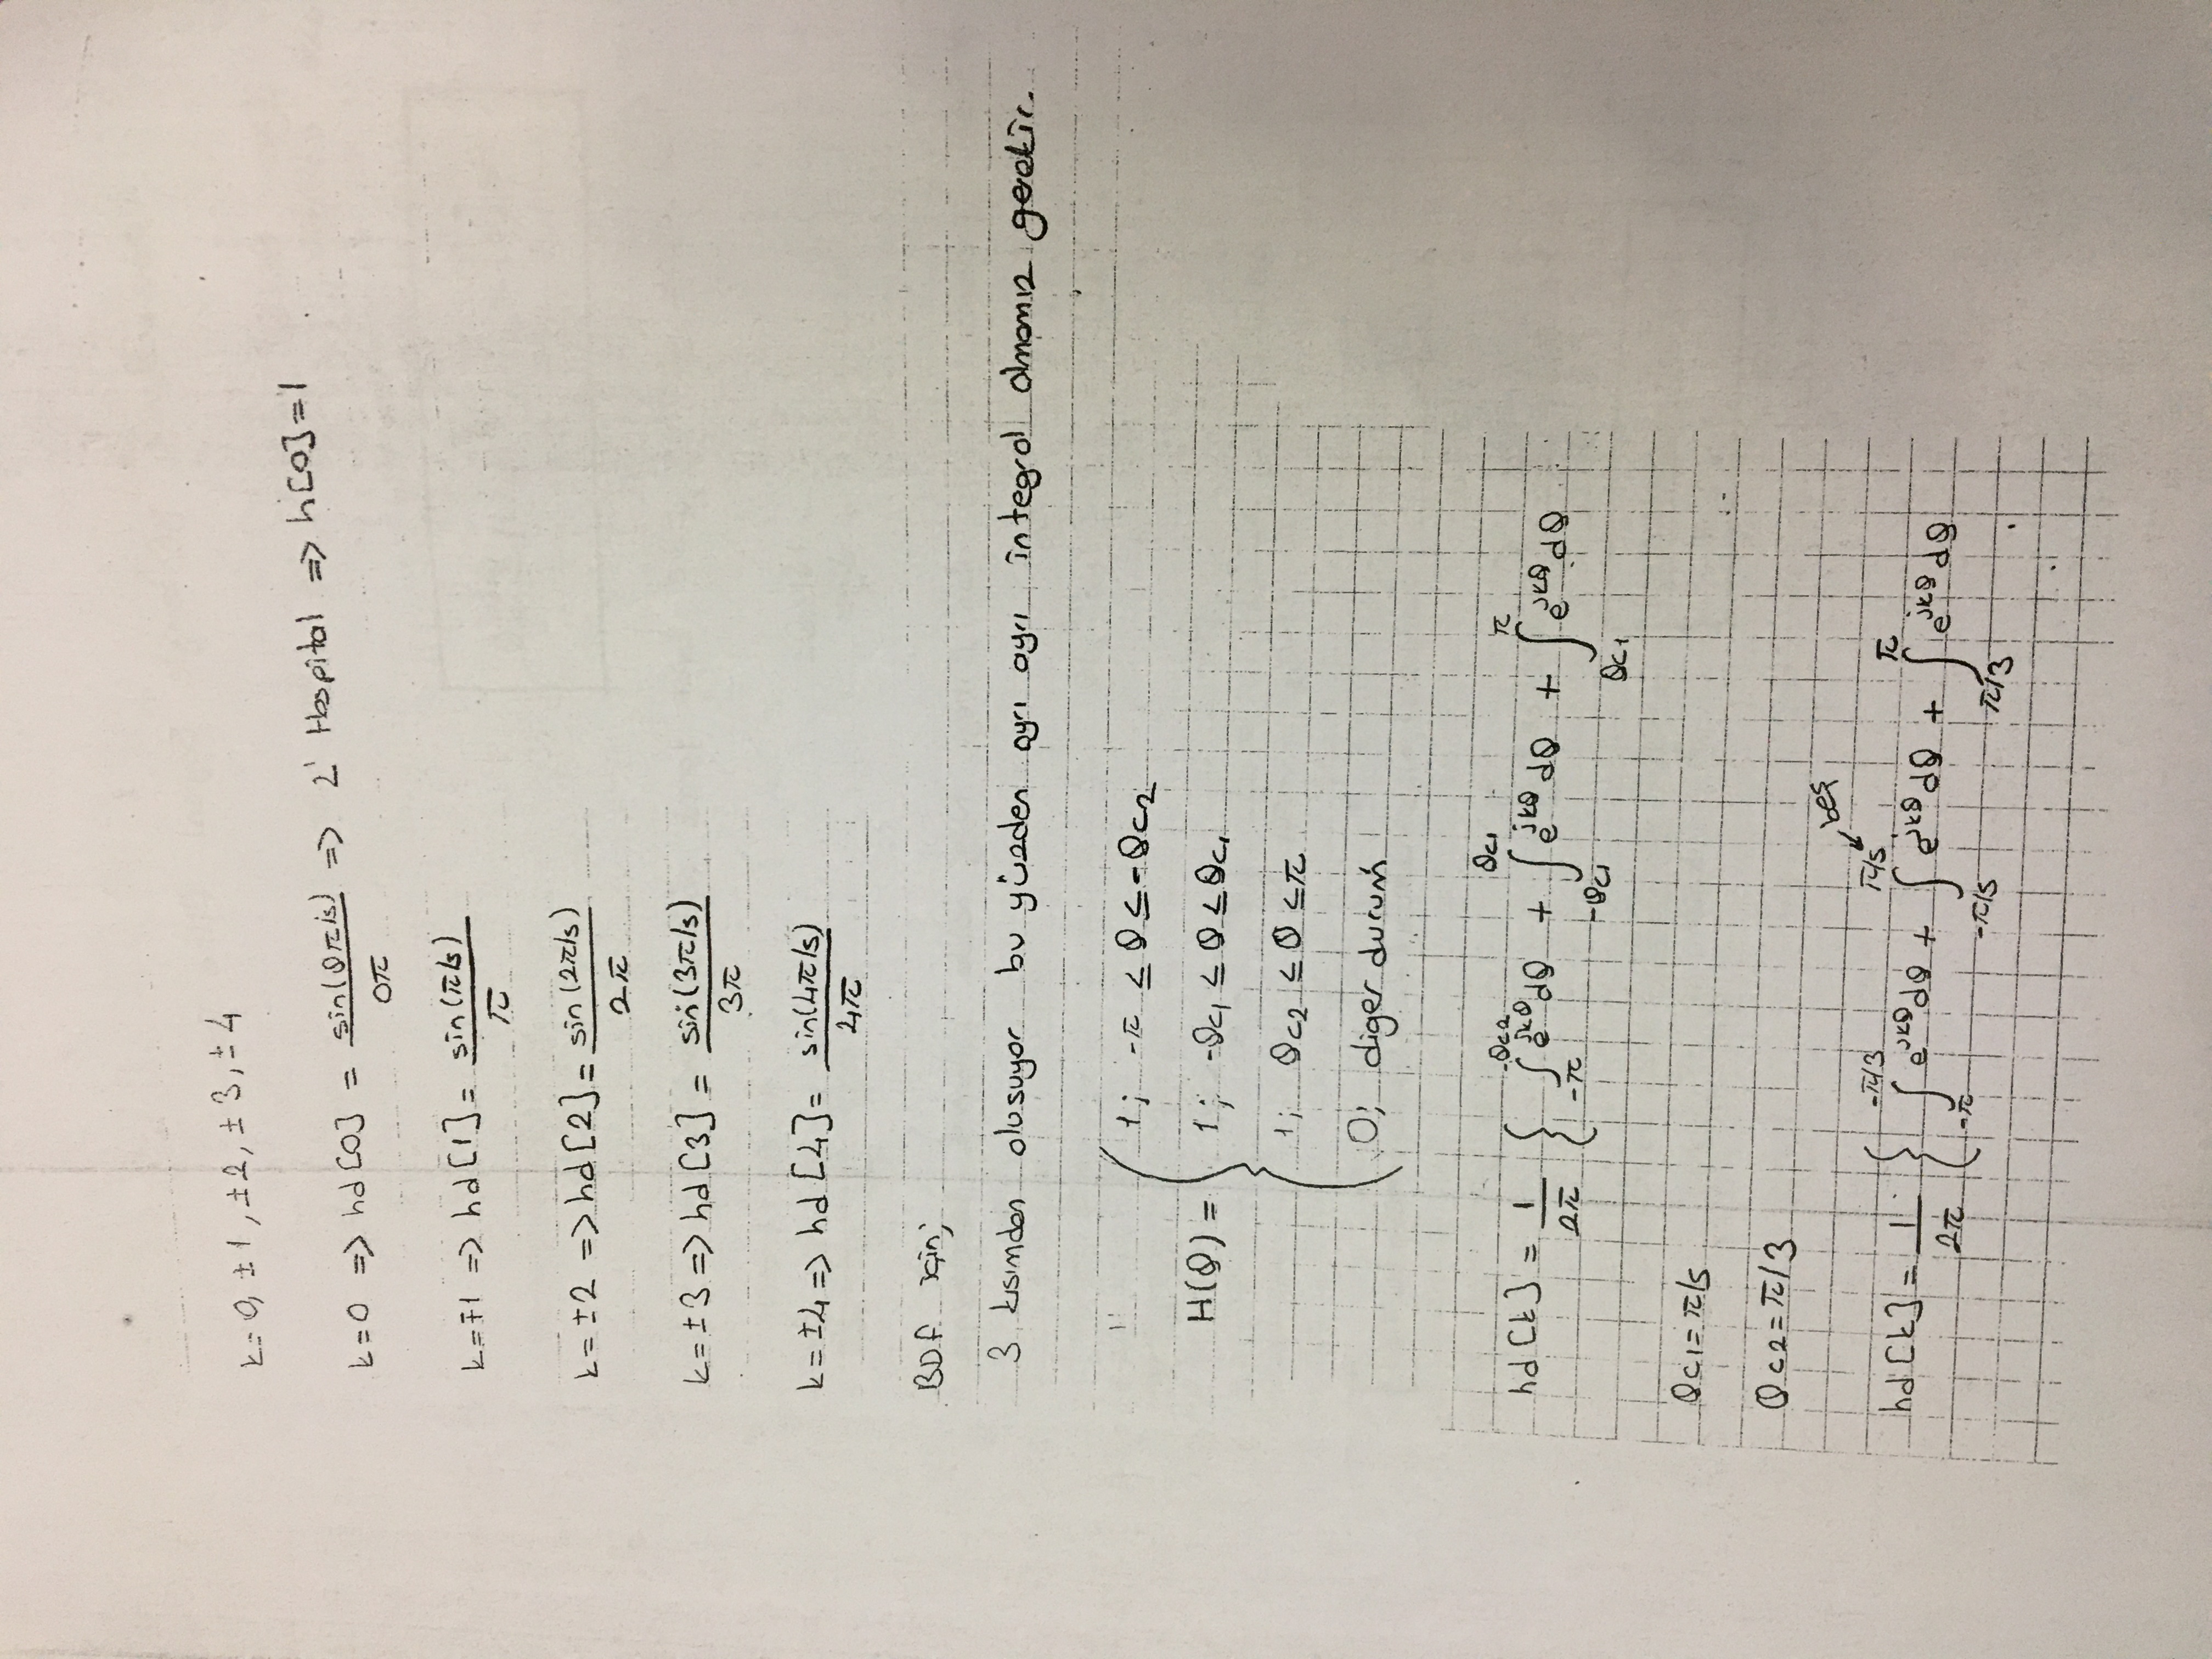 k=0, ±1, ±2, ±3, ±4
k=0 => hd[0] = sin(0π/5) / 0π => L' Hospital => h[0]=1
k=∓1 => hd[1] = sin(π/5) / π
k=±2 => hd[2] = sin(2π/5) / 2π
k=±3 => hd[3] = sin(3π/5) / 3π
k=±4 => hd[4] = sin(4π/5) / 4π
BDF için;
3 kısımdan olusuyor bu yüzden ayrı ayrı integral almamız gerekir.
1; -π ≤ θ ≤ -θc2
H(θ) = { 1; -θc1 ≤ θ ≤ θc1
1; θc2 ≤ θ ≤ π
0; diger durum
hd[k] = 1/2π { ∫_{-π}^{-θc2} e^{jkθ} dθ + ∫_{-θc1}^{θc1} e^{jkθ} dθ + ∫_{θc1}^{π} e^{jkθ} dθ
θc1 = π/5
θc2 = π/3
beş
hd[k] = 1/2π { ∫_{-π}^{-π/3} e^{jkθ} dθ + ∫_{-π/5}^{π/5} e^{jkθ} dθ + ∫_{π/3}^{π} e^{jkθ} dθ